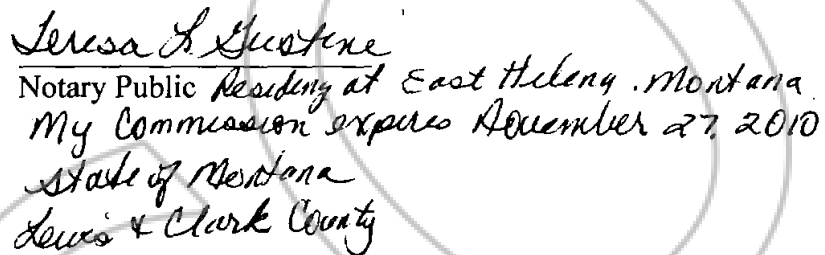 Teresa L Gustine
Notary Public Residing at East Helena, Montana
My Commission expires November 27, 2010
State of Montana
Lewis & Clark County